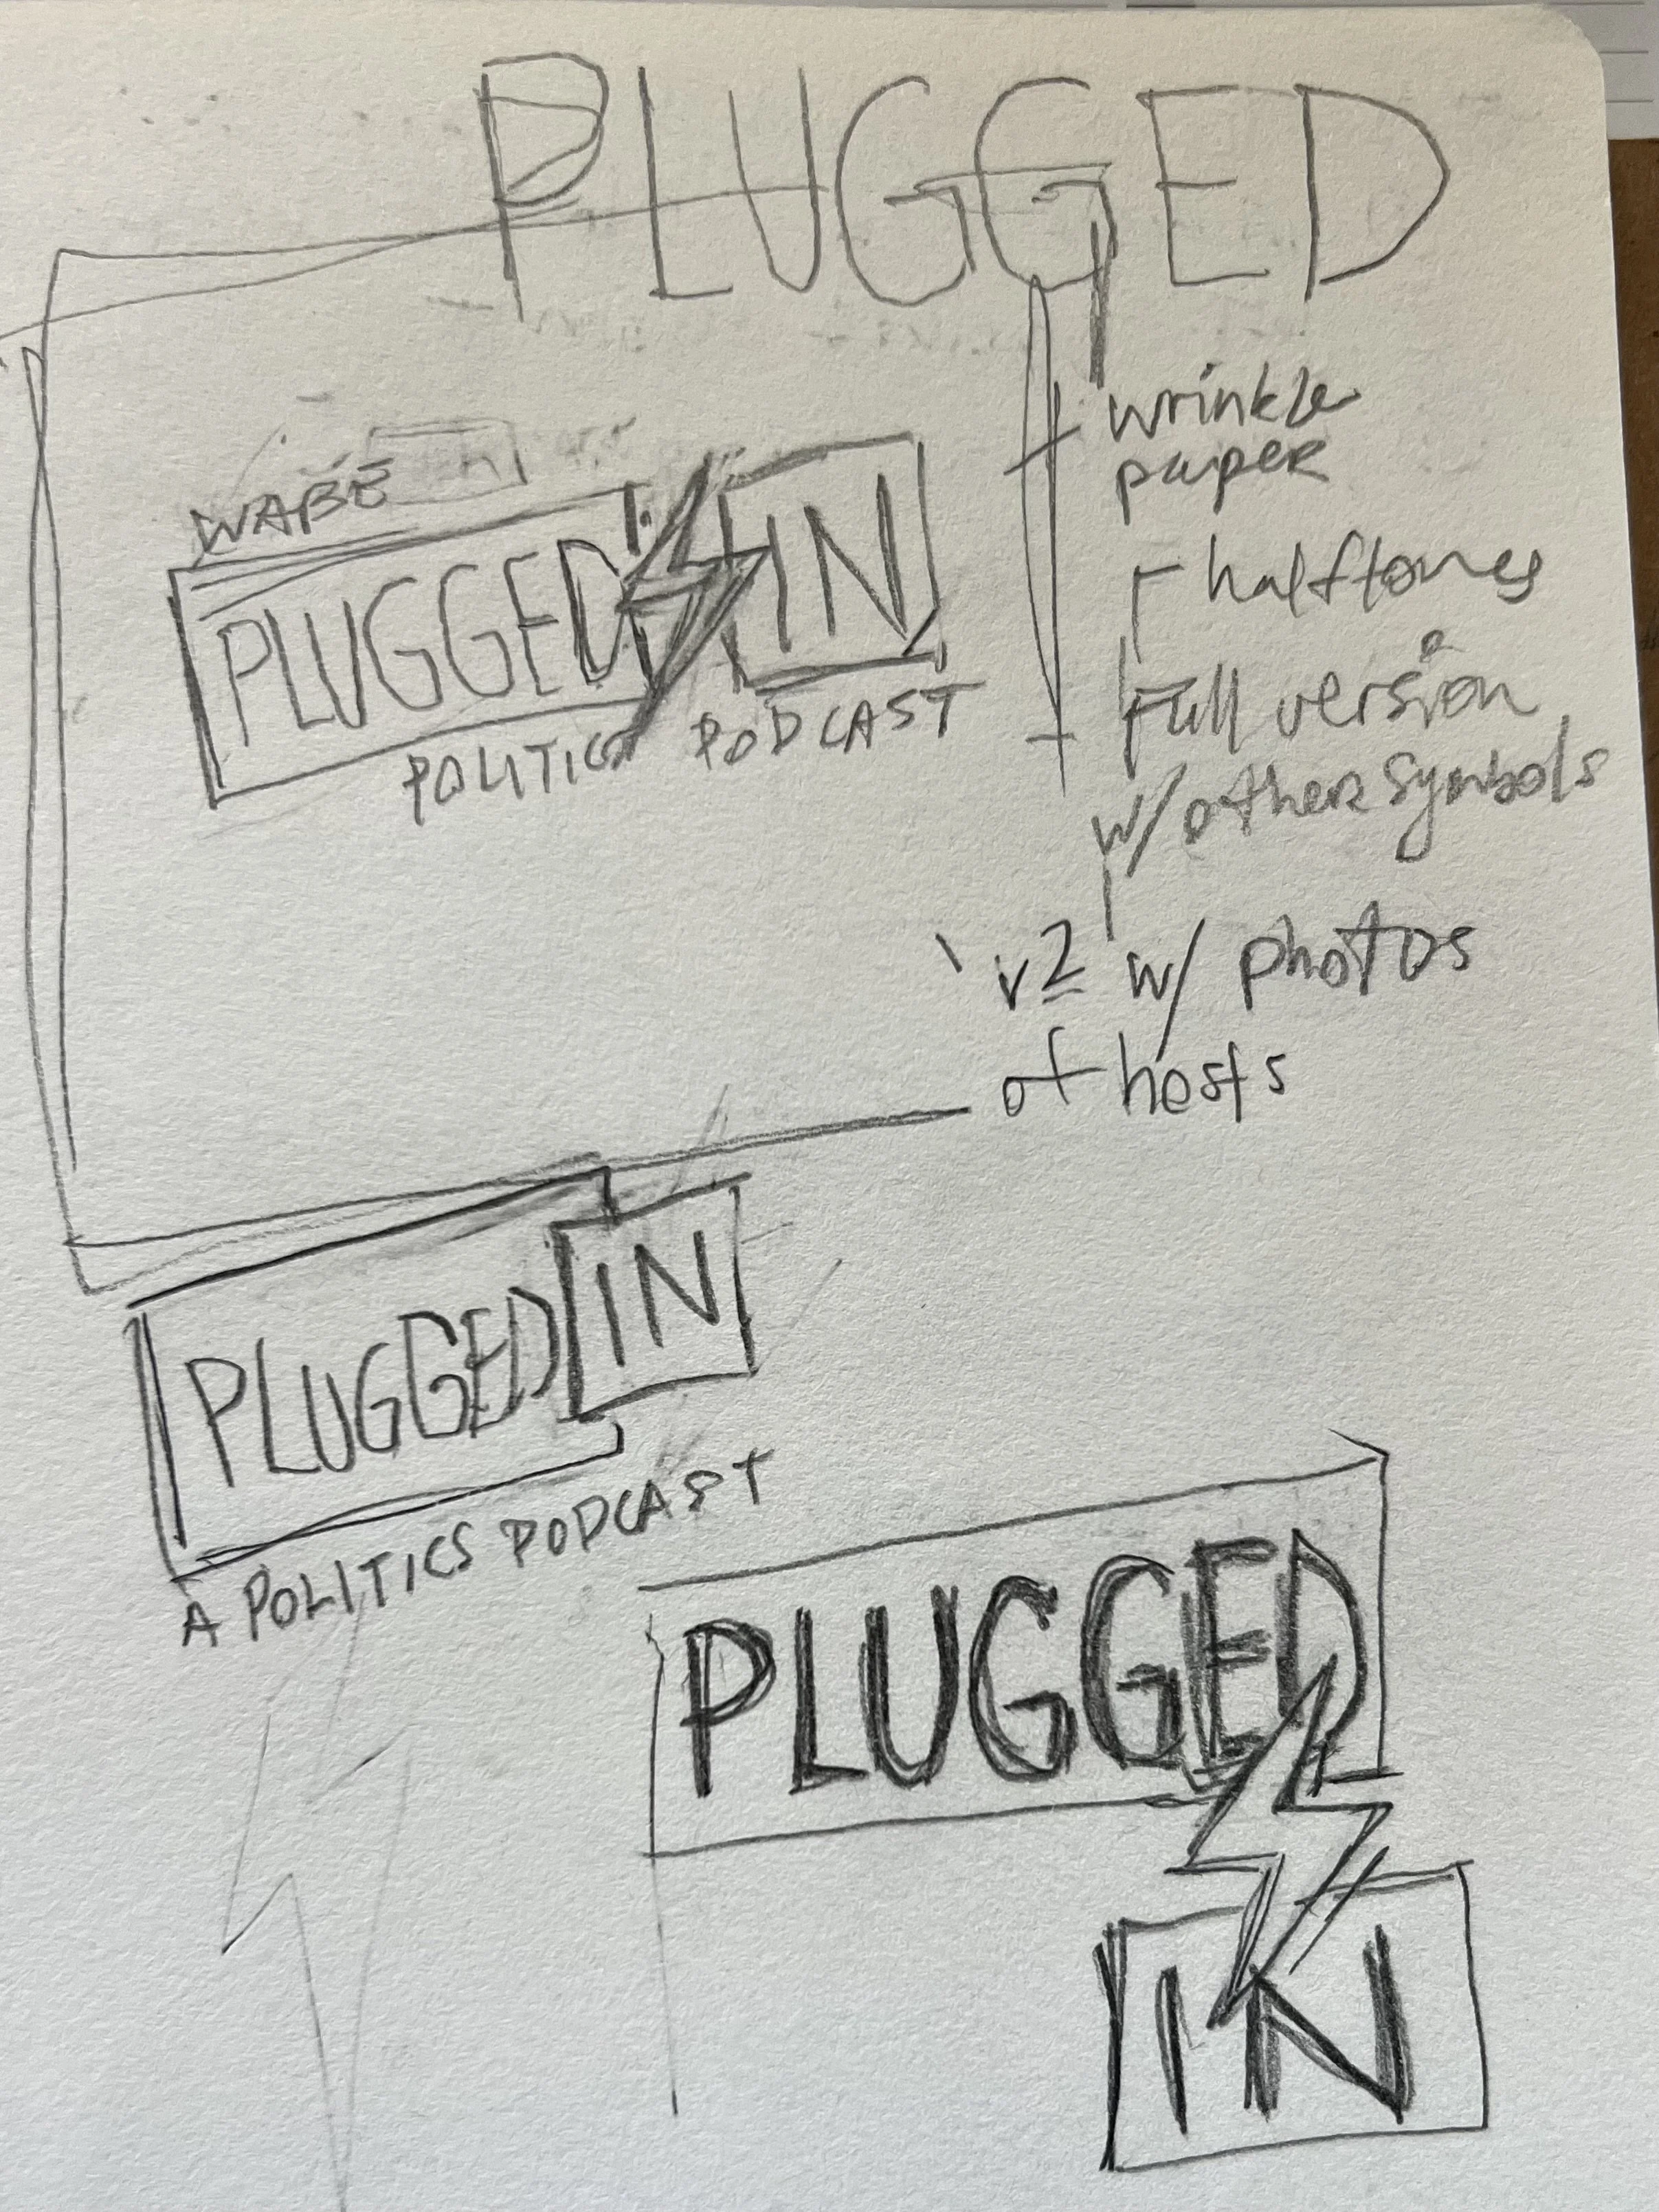 PLUGGED
wrinkle
paper
- halftones
- Full version
w/ other symbols
v2 w/ photos
of hosts
WABE
PLUGGED IN
POLITICS PODCAST
PLUGGED IN
A POLITICS PODCAST
PLUGGED
IN